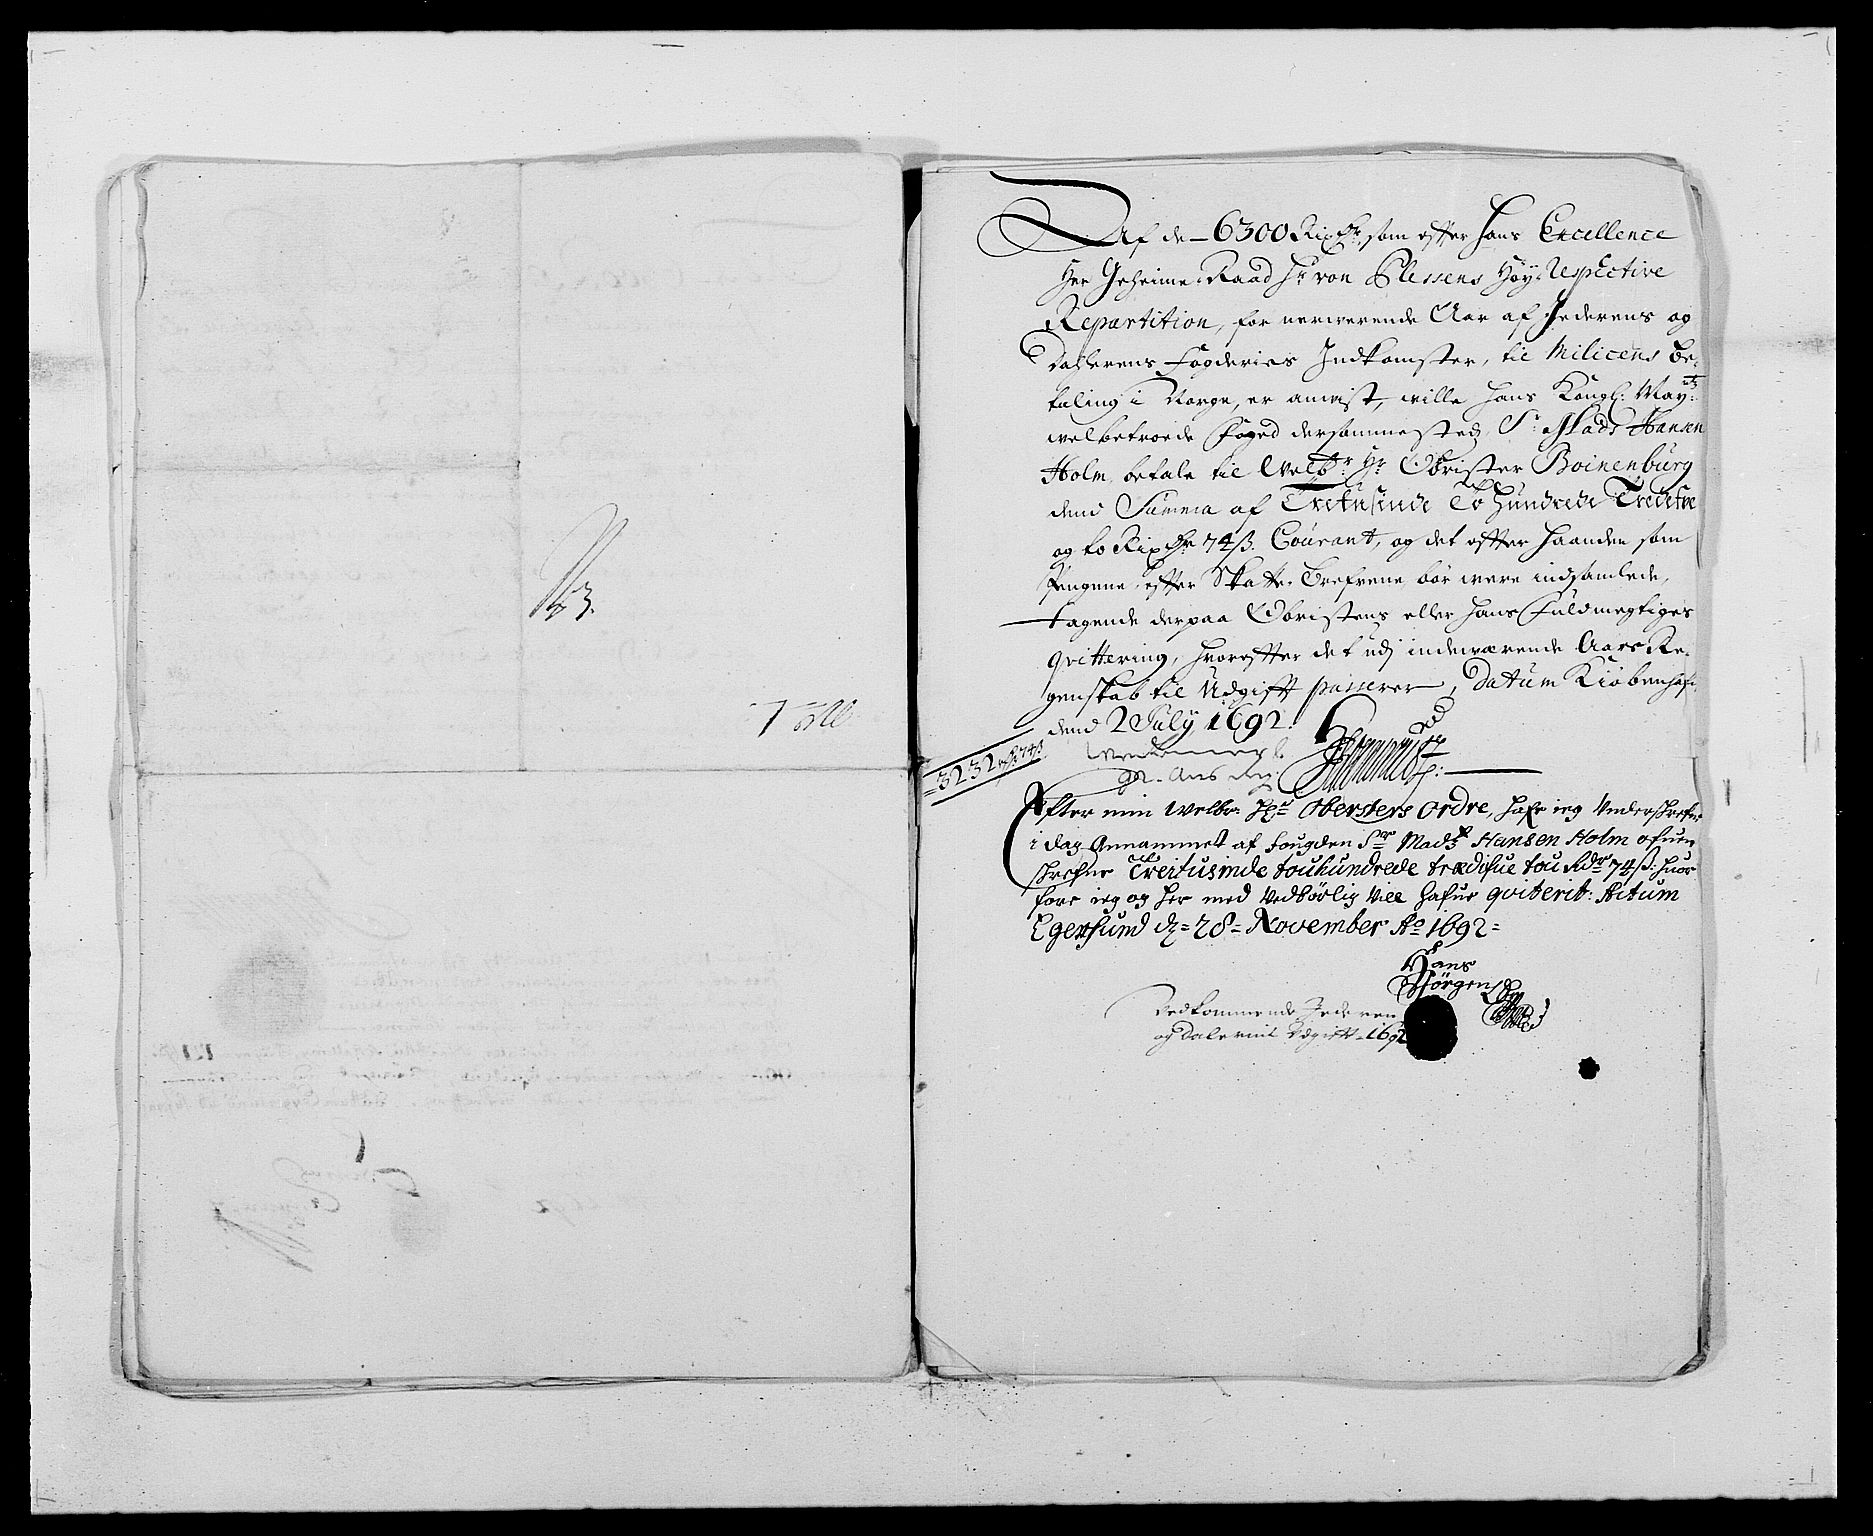 N 3.
Af de 6300 Rixdr, som efter Hans Excellence
Her Geheime Raad Hr von Plessens Høy Respective
Repartition, for nerwerende Aar af Jederens og
Dahlerens Fogderies Indkomster, til Milicens be-
taling i Norge, er anvist, wille Hans Kongl: Mayts
welbetroede Foged dersammesteds, Sr Mads Hansen
Holm, betale til Welbr Hr Obrister Boinenburg
dend Summa af Tretusinde To Hundrede Tredeve
og to Rixdr 74 ß. Courant, og det efter haanden som
Pengene, efter Skatte Brefvene bør were indsamlede,
tagende derpaa Obristens eller hans Fuldmegtiges
qvittering, hvorefter det udj indewærende Aars Re-
genskab til Udgift passerer, Datum Kiøbenhafn
dend 2 July 1692.
3232 rdr 74 ß
Efter min welbr. Hr Obersters Ordre, hafr ieg Underskrefne
i dag Annammet af fougden Sr Mads Hansen Holm ofuen
skrefne Treitusinde touhundrede trædifue tou Rdr 74 ß: huor
fore ieg og her med Vedbørlig Viil hafue qviterit: Actum
Egersund d: 28 November Ao 1692
Hans
Jørgen
Vedkommende Jederen
og Dalerens Udgift 1692